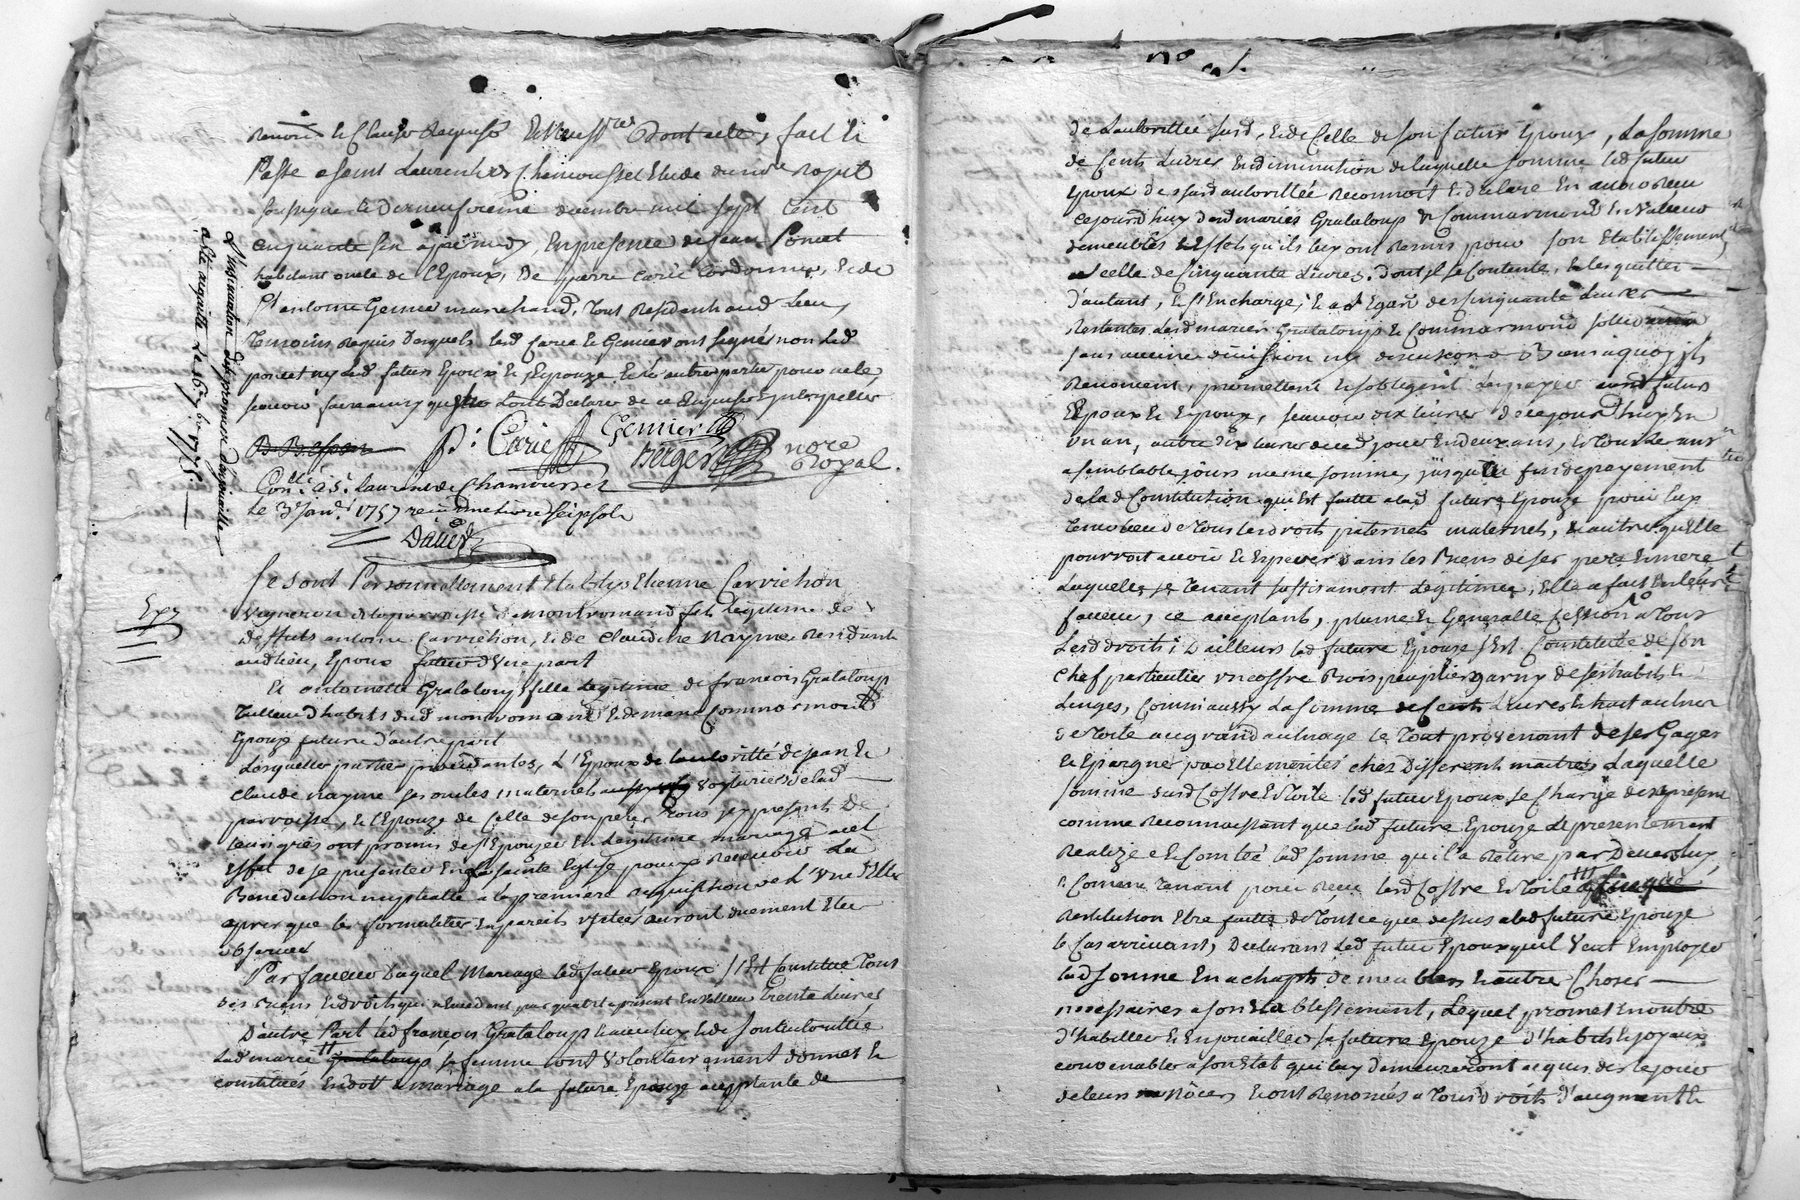 fait et
passé a saint Laurent de Chamousset Etude dud no.re royal
soussigné le dix neufvieme decembre mil sept cent
cinquante six apres midy, En presence de Jean Poncet
habitant oncle de l'Epoux, de pierre Carié Cordonnier, Et de
S.r antoine Genier marchand, Tous Residents aud Lieu,
Temoins Requis desquels lesd Carié Et Genier ont signé non led
poncet ny led futur Epoux Et Epouze Et les autres parties pour ne le
scavoir faire
P. Carié Genier
Berger no.re Royal.
Con.llé a S.t Laurent de Chamousset
Le 3 Janv.r 1757 reçu une livre seize sols
L'insinuation du present d'apouaille
a été acquittée le 16 7.bre 1775.
Exp
Se sont Personnellement Etablys Etienne Carrichon
Vigneron de la parroisse de montromand fils legitime de
deffunts antoine Carrichon, Et de Claudine Nayme Residant
audlieu, Epoux futur d'Une part
Et antoinette Grataloup fille legitime de francois Grataloup
Tailleur d'habits dud montromand Et de marie Commarmond
Epouze future d'autre part
Lesquelles parties procedantes, L'Epoux de lautoritté de jean Et
Claude nayme ses oncles maternels voyturiers de lad
parroisse, Et l'Epouze de Celle de son pere, Tous icy presents De
leurs grés ont promis de s'Epouzer En Legitime mariage a cet
Effet de se presenter En la sainte Eglise pour y Recevoir La
Benediction nuptialle a la premiere requisition de L'Une d'Elles
apres que les formalités En pareils Usitées auront duement Eté
observées
Par faveur Duquel Mariage led futur Epoux s'Est Constitué Tous
ses Biens Et droits En Valleur Trente Livres
D'autre Part led francois Grataloup
lad marie sa femme ont volontairement donné Et
constitués En dott Et mariage a la future Epouze acceptante de
de Lautorittée susd, Et de Celle de son futur Epoux, La somme
de Cents Livres En diminution de laquelle somme led futur
Epoux de susd autorittée Reconnoit Et declare En avoir Receu
cejourd'huy desd mariés Grataloup Et Commarmond En Valleur
de meubles Et Effets qu'ils luy ont Remis pour son Etablissement
celle de Cinquante Livres, dont il se Contente, Et les quitte
d'autant, Et s'En charge, Et a l'Egard des Cinquante Livres
Restantes Lesd mariés Grataloup Et Commarmond
sans aucune division ny discussion a quoy ils
Renoncent, promettent Et s'obligent de payer auxd futurs
Epoux Et Epouze, scavoir dix Livres de cejourd'huy En
un an, autre dix Livres aud jour En deux ans,
a semblable jours meme somme, jusqu'a fin de payement
de lad Constitution qui Est faitte alad future Epouze pour luy
tenir lieu de Tous les droits paternels maternels, Et autres qu'Elle
pourroit avoir Et Esperer dans les Biens de ses pere Et mere
Laquelle se Tenant Legitimée, Elle a fait En leur
faveur, ce acceptants, plaine Et Generalle Cession de Tous
Lesd droits; D'ailleurs lad future Epouse s'Est Constituée de son
Chef particulier un coffre Bois peuplier garny de ses habits Et
Linges, Comm'aussy La somme de Cents Livres Et huit aulnes
de Toile au grand aulnage le Tout provenant de ses Gages
Et Epargnes par Elle mérités chez Different maitres Laquelle
somme susd Coffre Et Toile led futur Epoux se Charge
comme Reconnoissant que lad future Epouze Le presentement
Realizé Et Comté lad somme qu'il a Retiré par Devers luy
Comme Tenant pour Receu lesd Coffre Et Toile
Restitution Etre faitte de Tout ce que dessus alad future Epouze
le Cas arrivant, Declarant led futur Epoux qu'il Veut Employer
lad somme En achapts de meubles Et autres Choses
necessaires a son Etablissement, Lequel promet En outre
d'habiller Et Enjouailler sa future Epouze d'habits Et joyaux
convenables a son Etat qui luy demeureront acquis des le jour
de leurs Nôces Et ont Renoncés a Tous droits d'augment Et